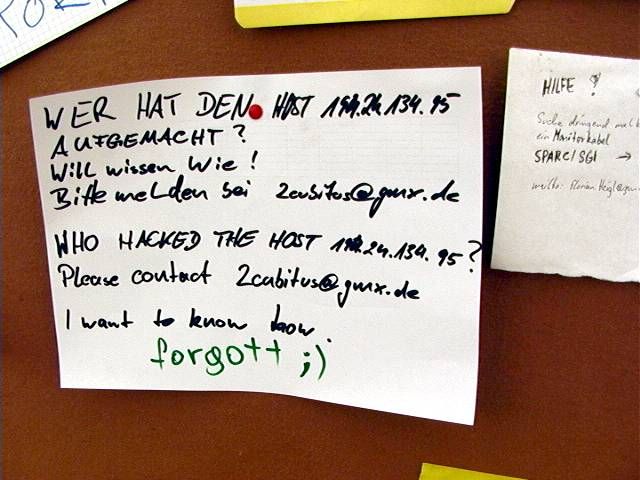 WER HAT DEN HOST 194.24.134.95
AUFGEMACHT?
Will wissen wie!
Bitte melden bei 2cubitus@gmx.de
WHO HACKED THE HOST 194.24.134.95?
Please contact 2cubitus@gmx.de
I want to know how.
forgott ;)
HILFE?
Suche dringend
ein Monitorkabel
SPARC/SGI →